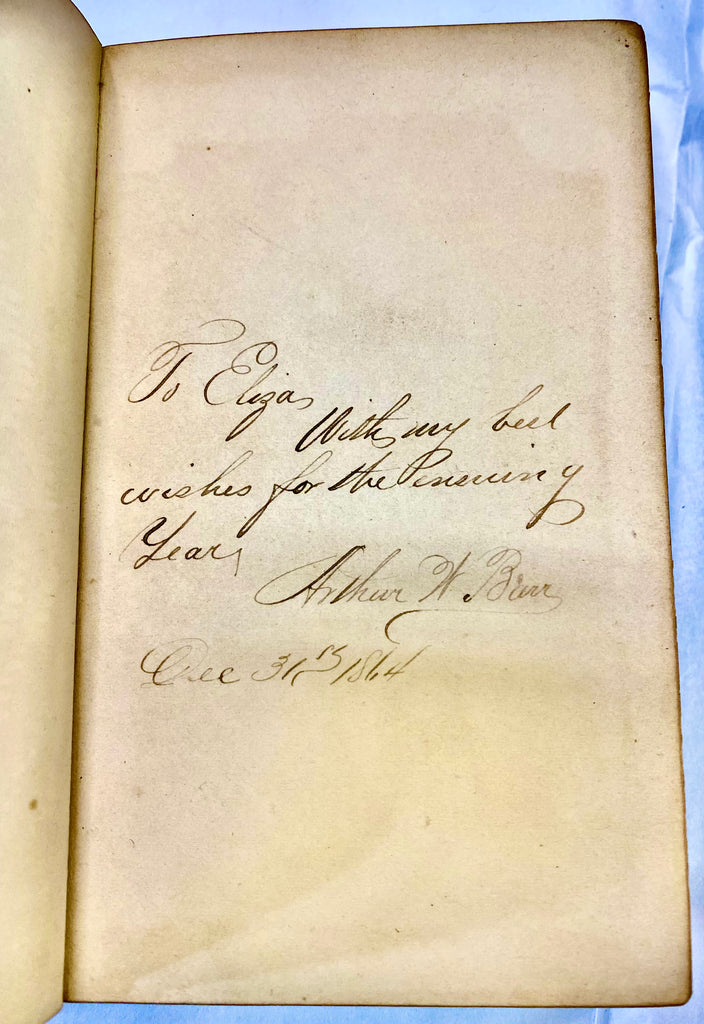 To Eliza
With my best
wishes for the ensuing
Year,
Arthur W Burr
Dec 31st 1864